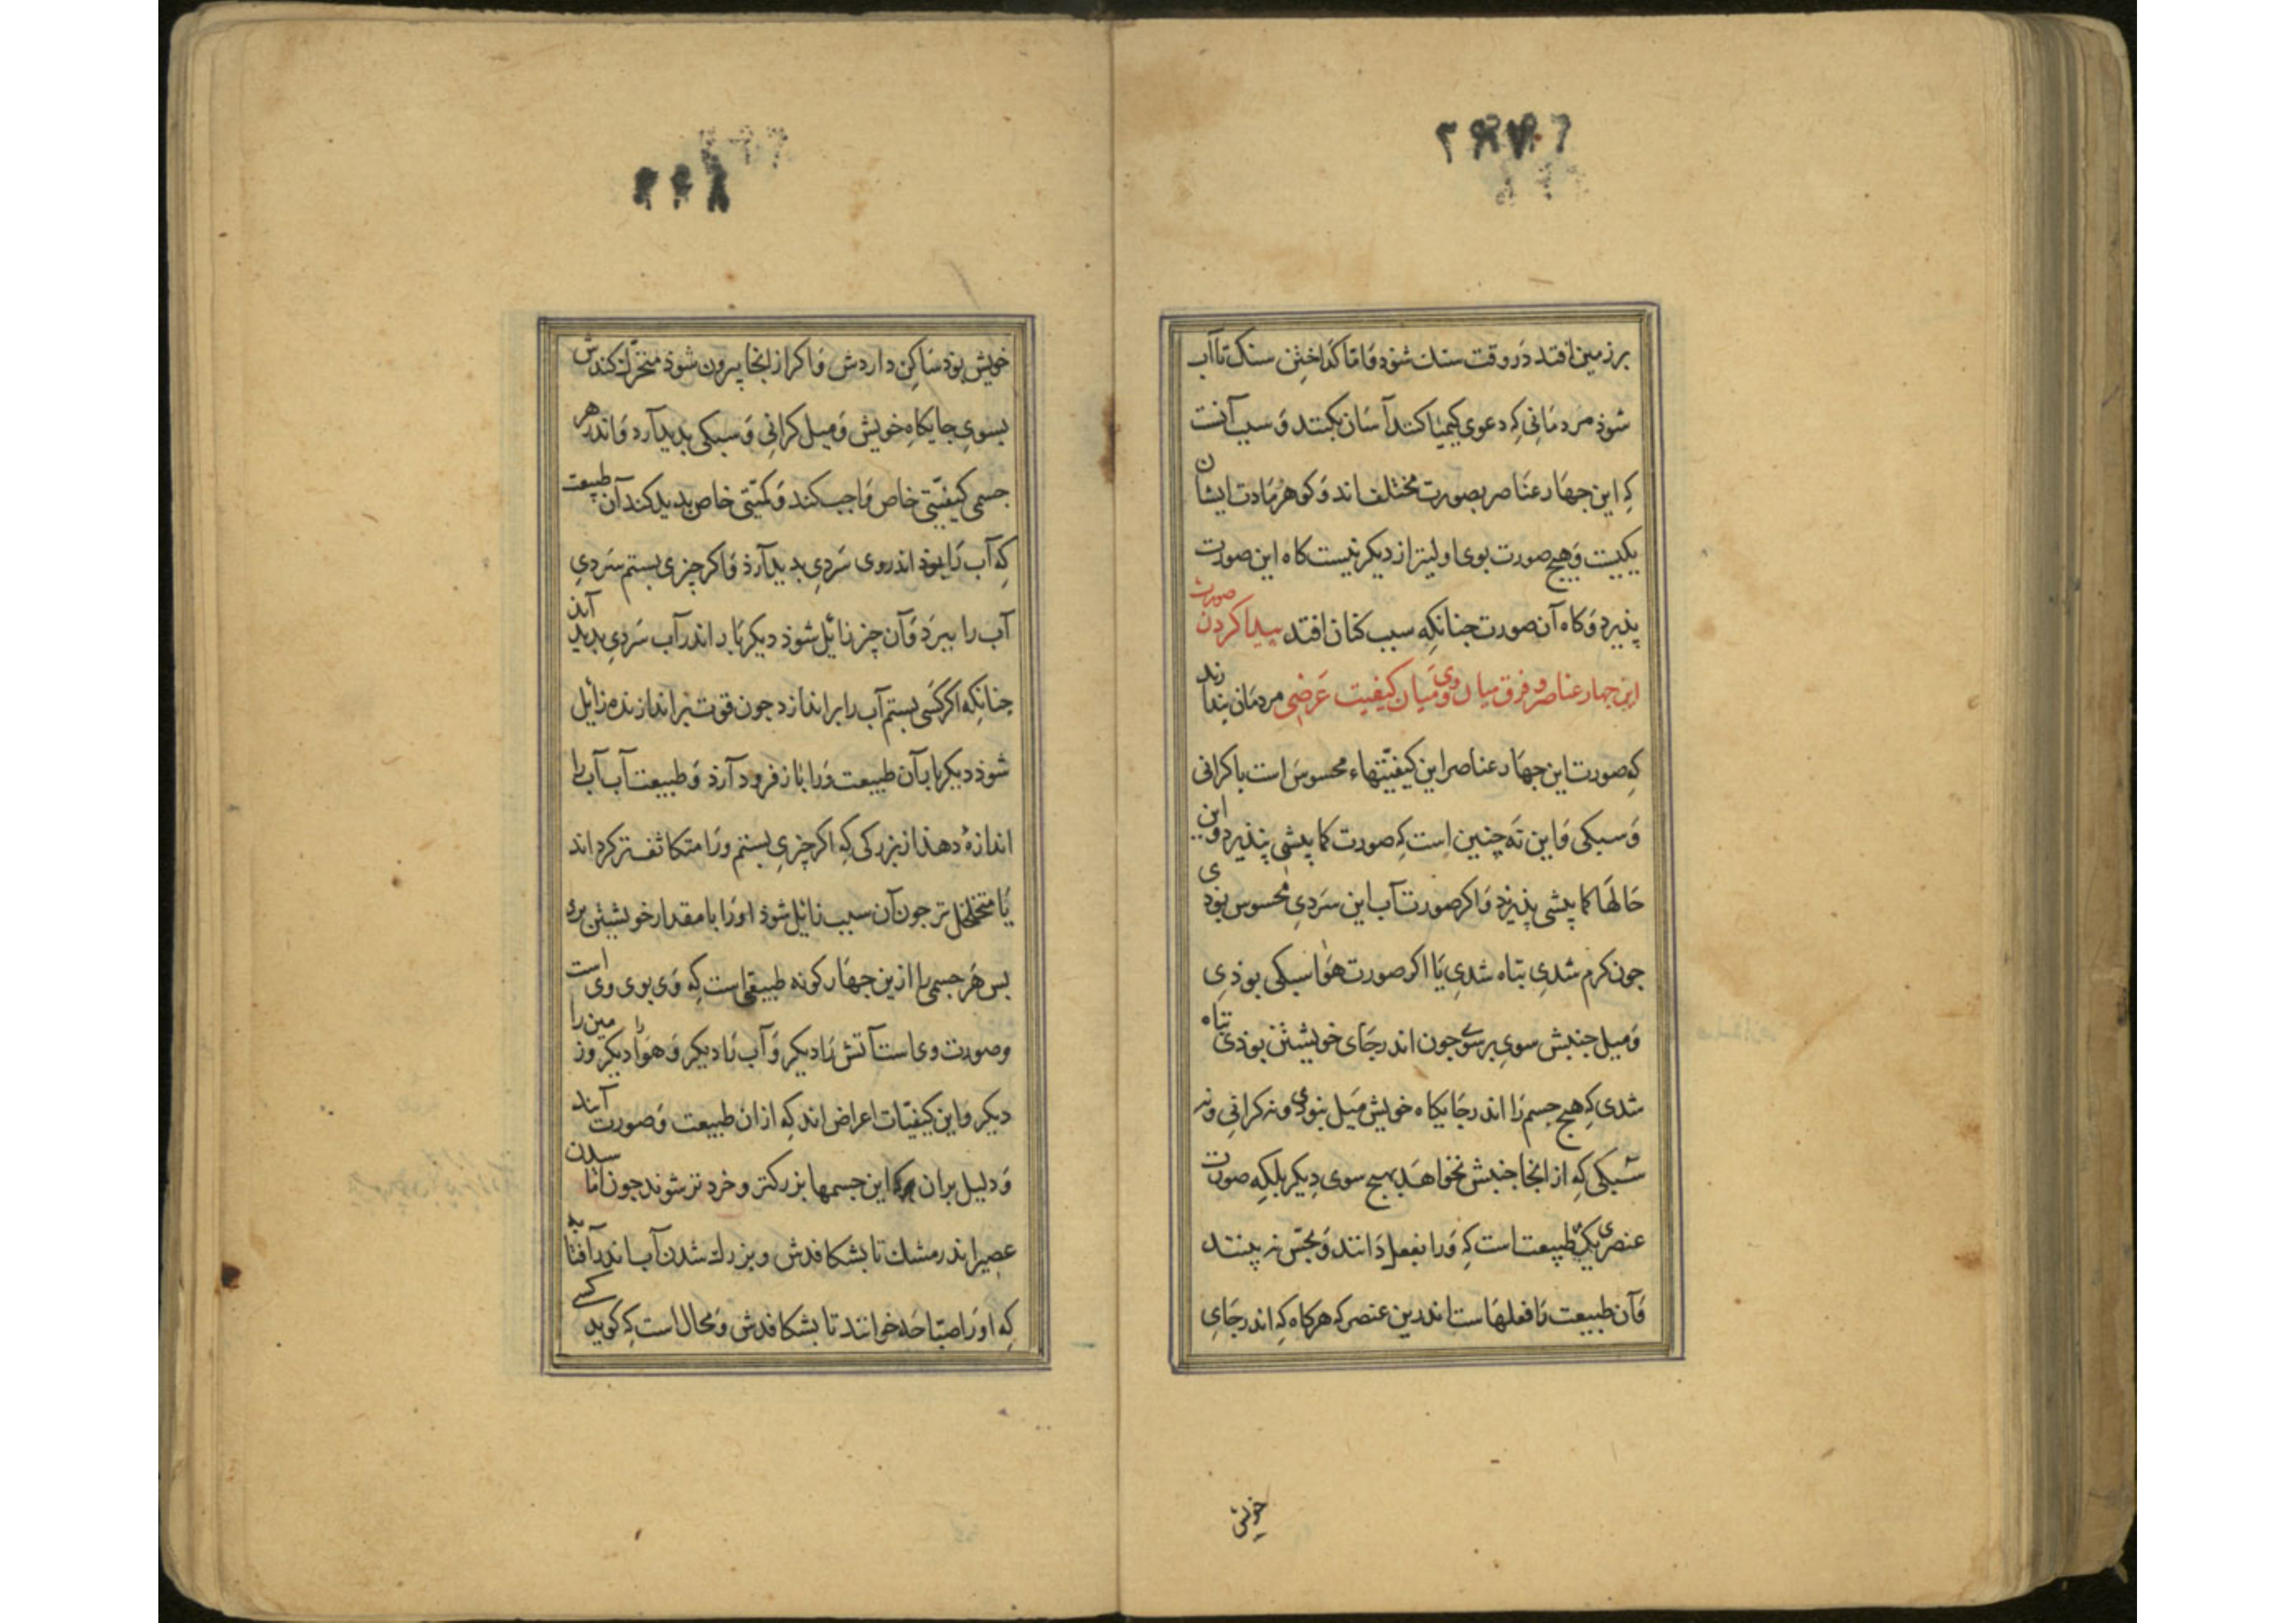 بر زمین افتد در وقت سنك شود واما کداختن سنک تا آب
شوذ مردمانی که دعوی کیمیا کنند آسان بکنند و سبب آنست
که این جهار عناصر بصورت مختلف اند و کوهر مادت ایشان
یکیست و هیچ صورت بوی اولیتر از دیکر نیست کاه این صورت
پذیرد و کاه آن صورت جنانکه سبب کنان افتد پیدا کردن صورت
این جهار عناصر و فرق میان وی و میان کیفیت عرضی مردمان بندارند
که صورت این جهار عناصر این کیفیتهاء محسوس است با کرانی
و سبکی و این نه چنین است که صورت کمابیشی نپذیرد و این
حالها کمابیشی پذیرند و اکر صورت آب این سردی محسوس بوذی
جون کرم شدی تباه شدی یا اکر صورت هوا سبکی بوذی
و میل جنبش سوی بر سوی جون اندر جای خویشتن بوذی تباه
شدی که هیچ جسم را اندر جایکاه خویش میل نبوذی و نه کرانی و نه
سبکی که از انجا جنبش نخواهد بهیچ سوی دیکر بلکه صورت
عنصری یکی طبیعت است که ورا بفعل دانند و بحس نه بینند
و آن طبیعت را فعلهاست اندرین عنصر که هر کاه که اندر جای
خویش
خویش بوذ ساکن داردش و اکر از انجا بیرون شوذ متحرك کندش
بسوی جایکاه خویش و میل کرانی و سبکی بدید آرد و اندر هر
جسمی کیفیتی خاص واجب کند و کمیتی خاص بدید کند آن طبیعت
که آب را بوذ اندر وی سردی بدید آرذ و اکر چیزی بستم سردی
آب را ببرد و آن چیز زائل شوذ دیکر بار اندر آب سردی بدید آید
جنانکه اکر کسی بستم آب را بر اندازد جون قوت بر اندازنده زائل
شوذ دیکر بار آن طبیعت ورا باز فروذ آرذ و طبیعت آب آب را
اندازهٔ دهذ از بزرکی که اکر چیزی بستم ورا متکاثف تر کرداند
یا متخلخل تر جون آن سبب زائل شوذ اورا با مقدار خویشتن برد
بس هر جسمی را ازین جهار کونه طبیعتی است که وی بوی وی است
و صورت وی است آتش را دیکر و آب را دیکر و هوا را دیکر و زمین را
دیکر و این کیفیات اعراض اند که از ان طبیعت و صورت آیند
و دلیل بران که این جسمها بزرکتر و خردتر شوند جون اماسیدن
عصیر اندر مشك تا بشکافدش و بزرك شدن آب اندر آفتابه
که اورا صیاحه خوانند تا بشکافدش و محال است که کسی کوید